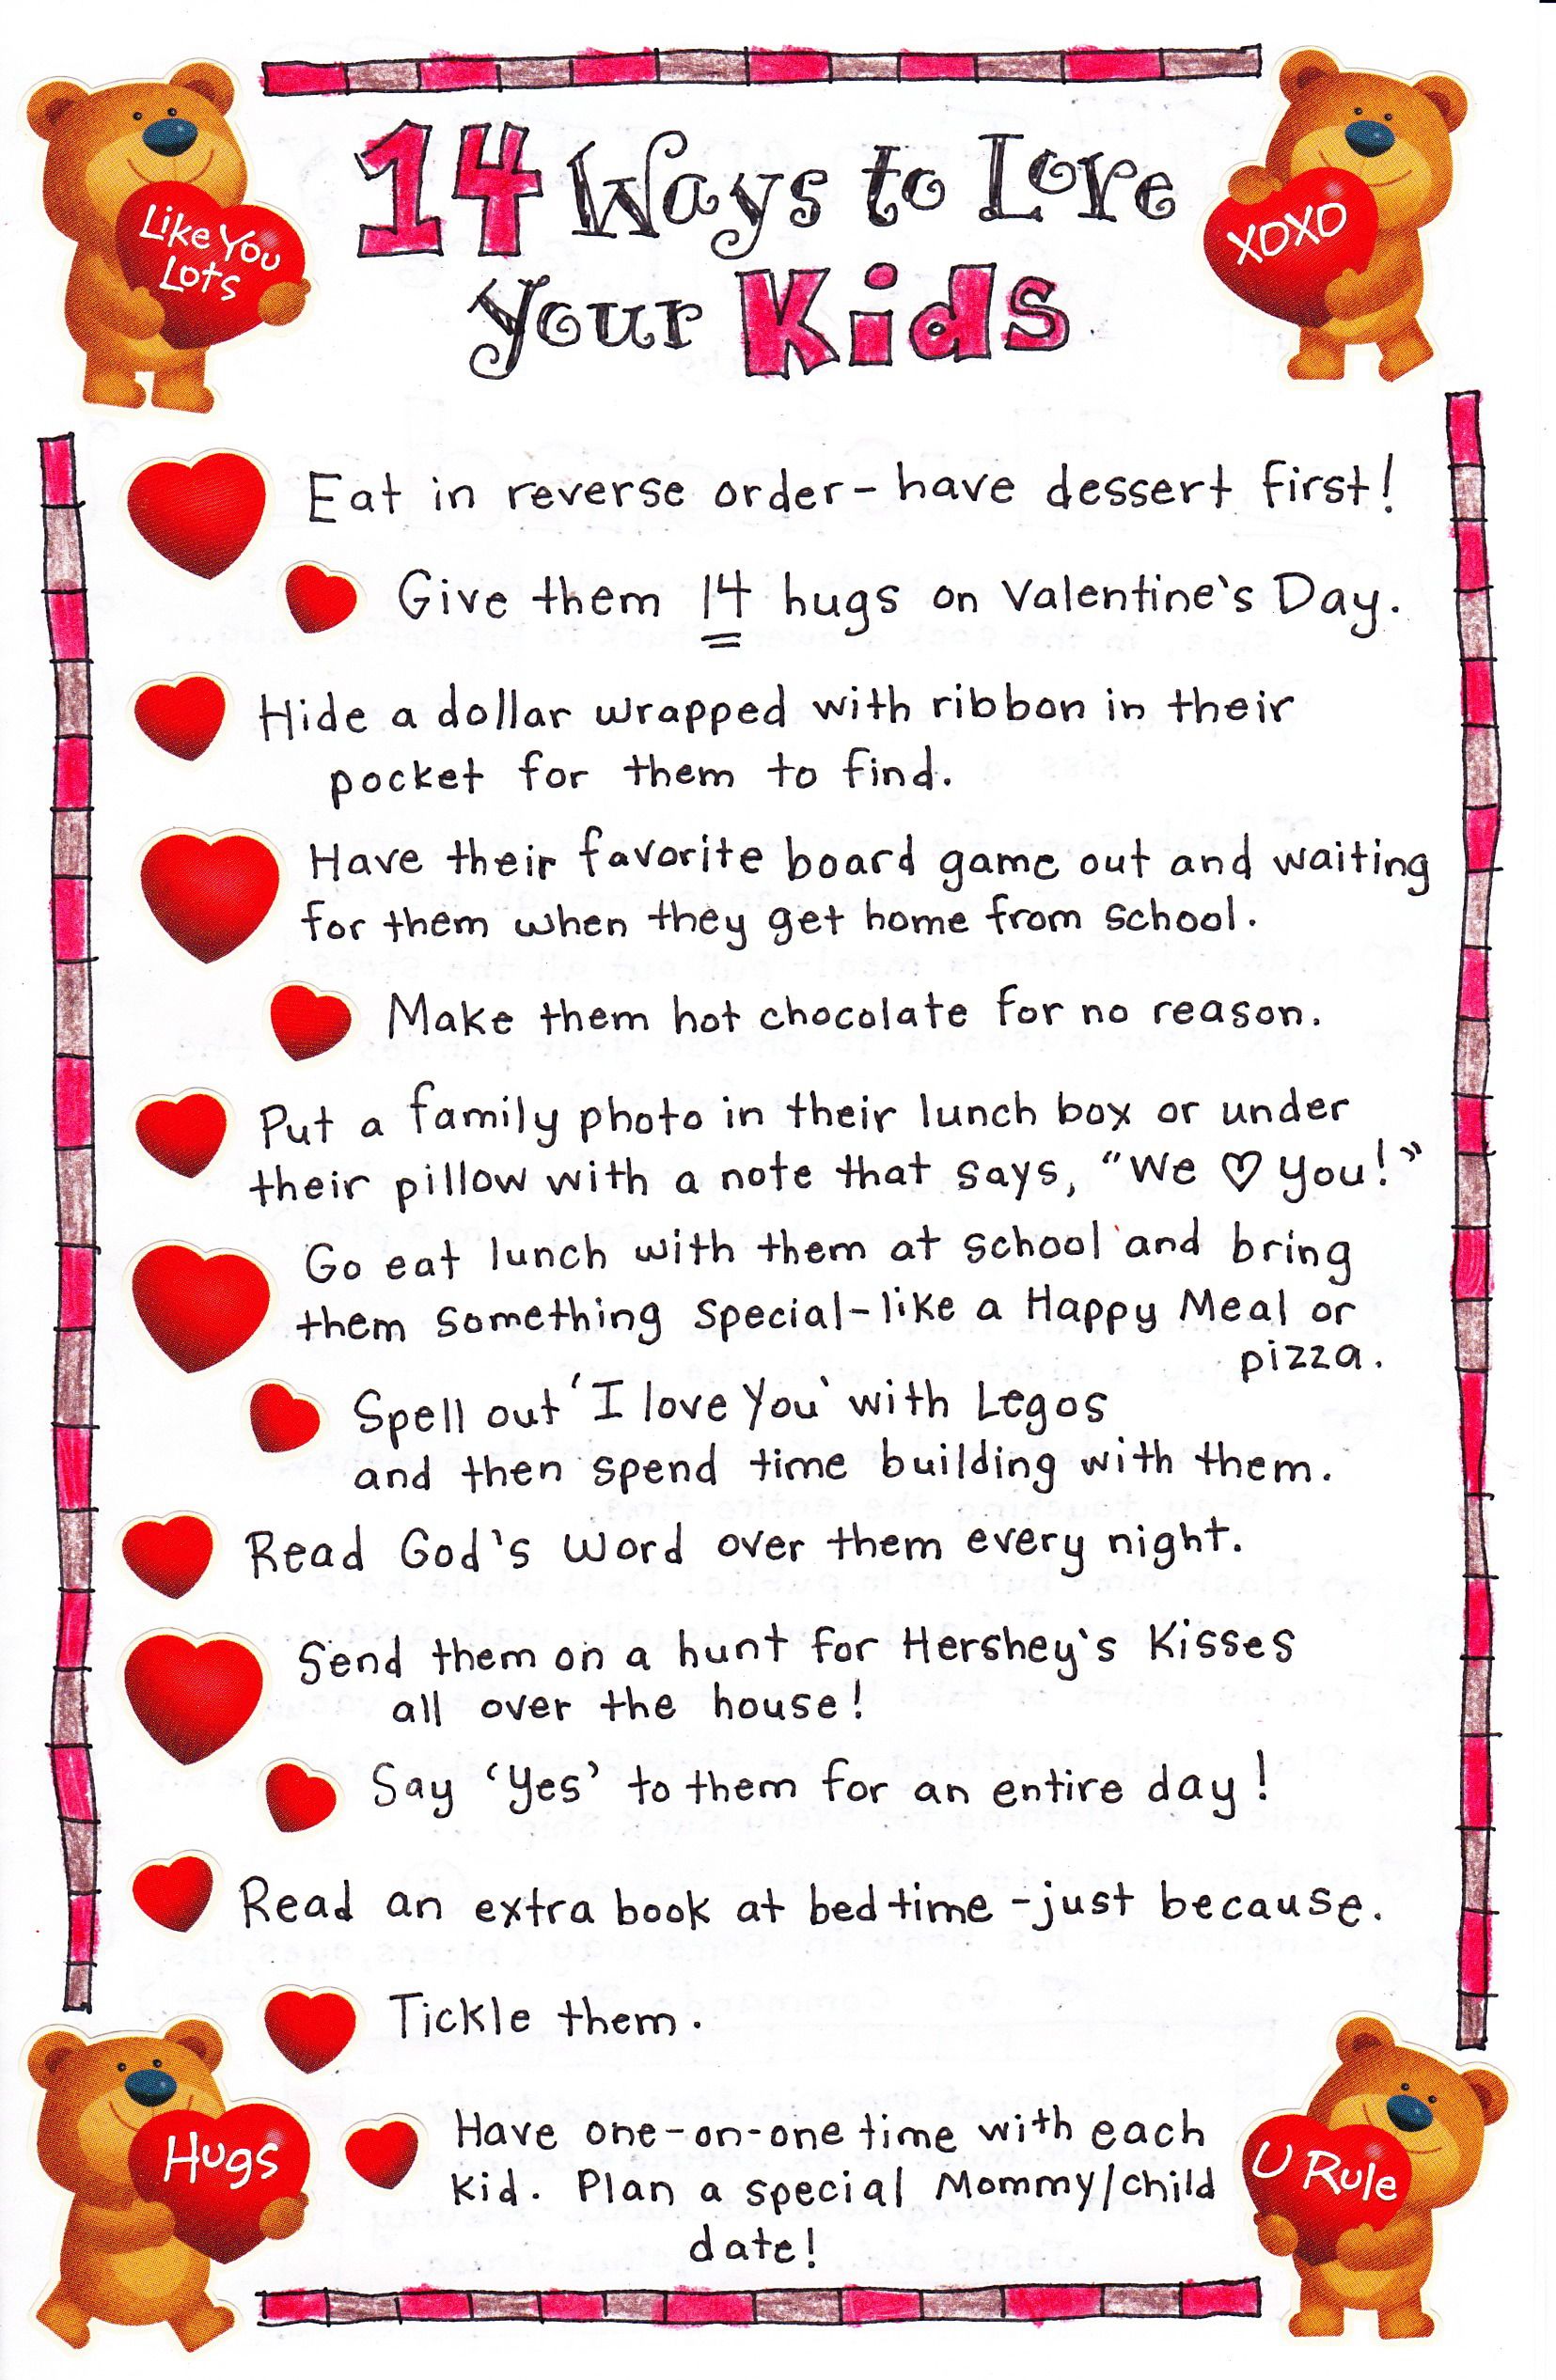 Like You
Lots
14 Ways to Love
XOXO
your Kids
Eat in reverse order - have dessert first!
Give them 14 hugs on Valentine's Day.
Hide a dollar wrapped with ribbon in their
pocket for them to find.
Have their favorite board game out and waiting
for them when they get home from school.
Make them hot chocolate for no reason.
Put a family photo in their lunch box or under
their pillow with a note that says, "We ♡ you!"
Go eat lunch with them at school and bring
them something special - like a Happy Meal or
pizza.
Spell out 'I love You' with Legos
and then spend time building with them.
Read God's Word over them every night.
Send them on a hunt for Hershey's Kisses
all over the house!
Say 'Yes' to them for an entire day!
Read an extra book at bedtime - just because.
Tickle them.
Have one-on-one time with each
kid. Plan a special Mommy/child
date!
Hugs
U Rule